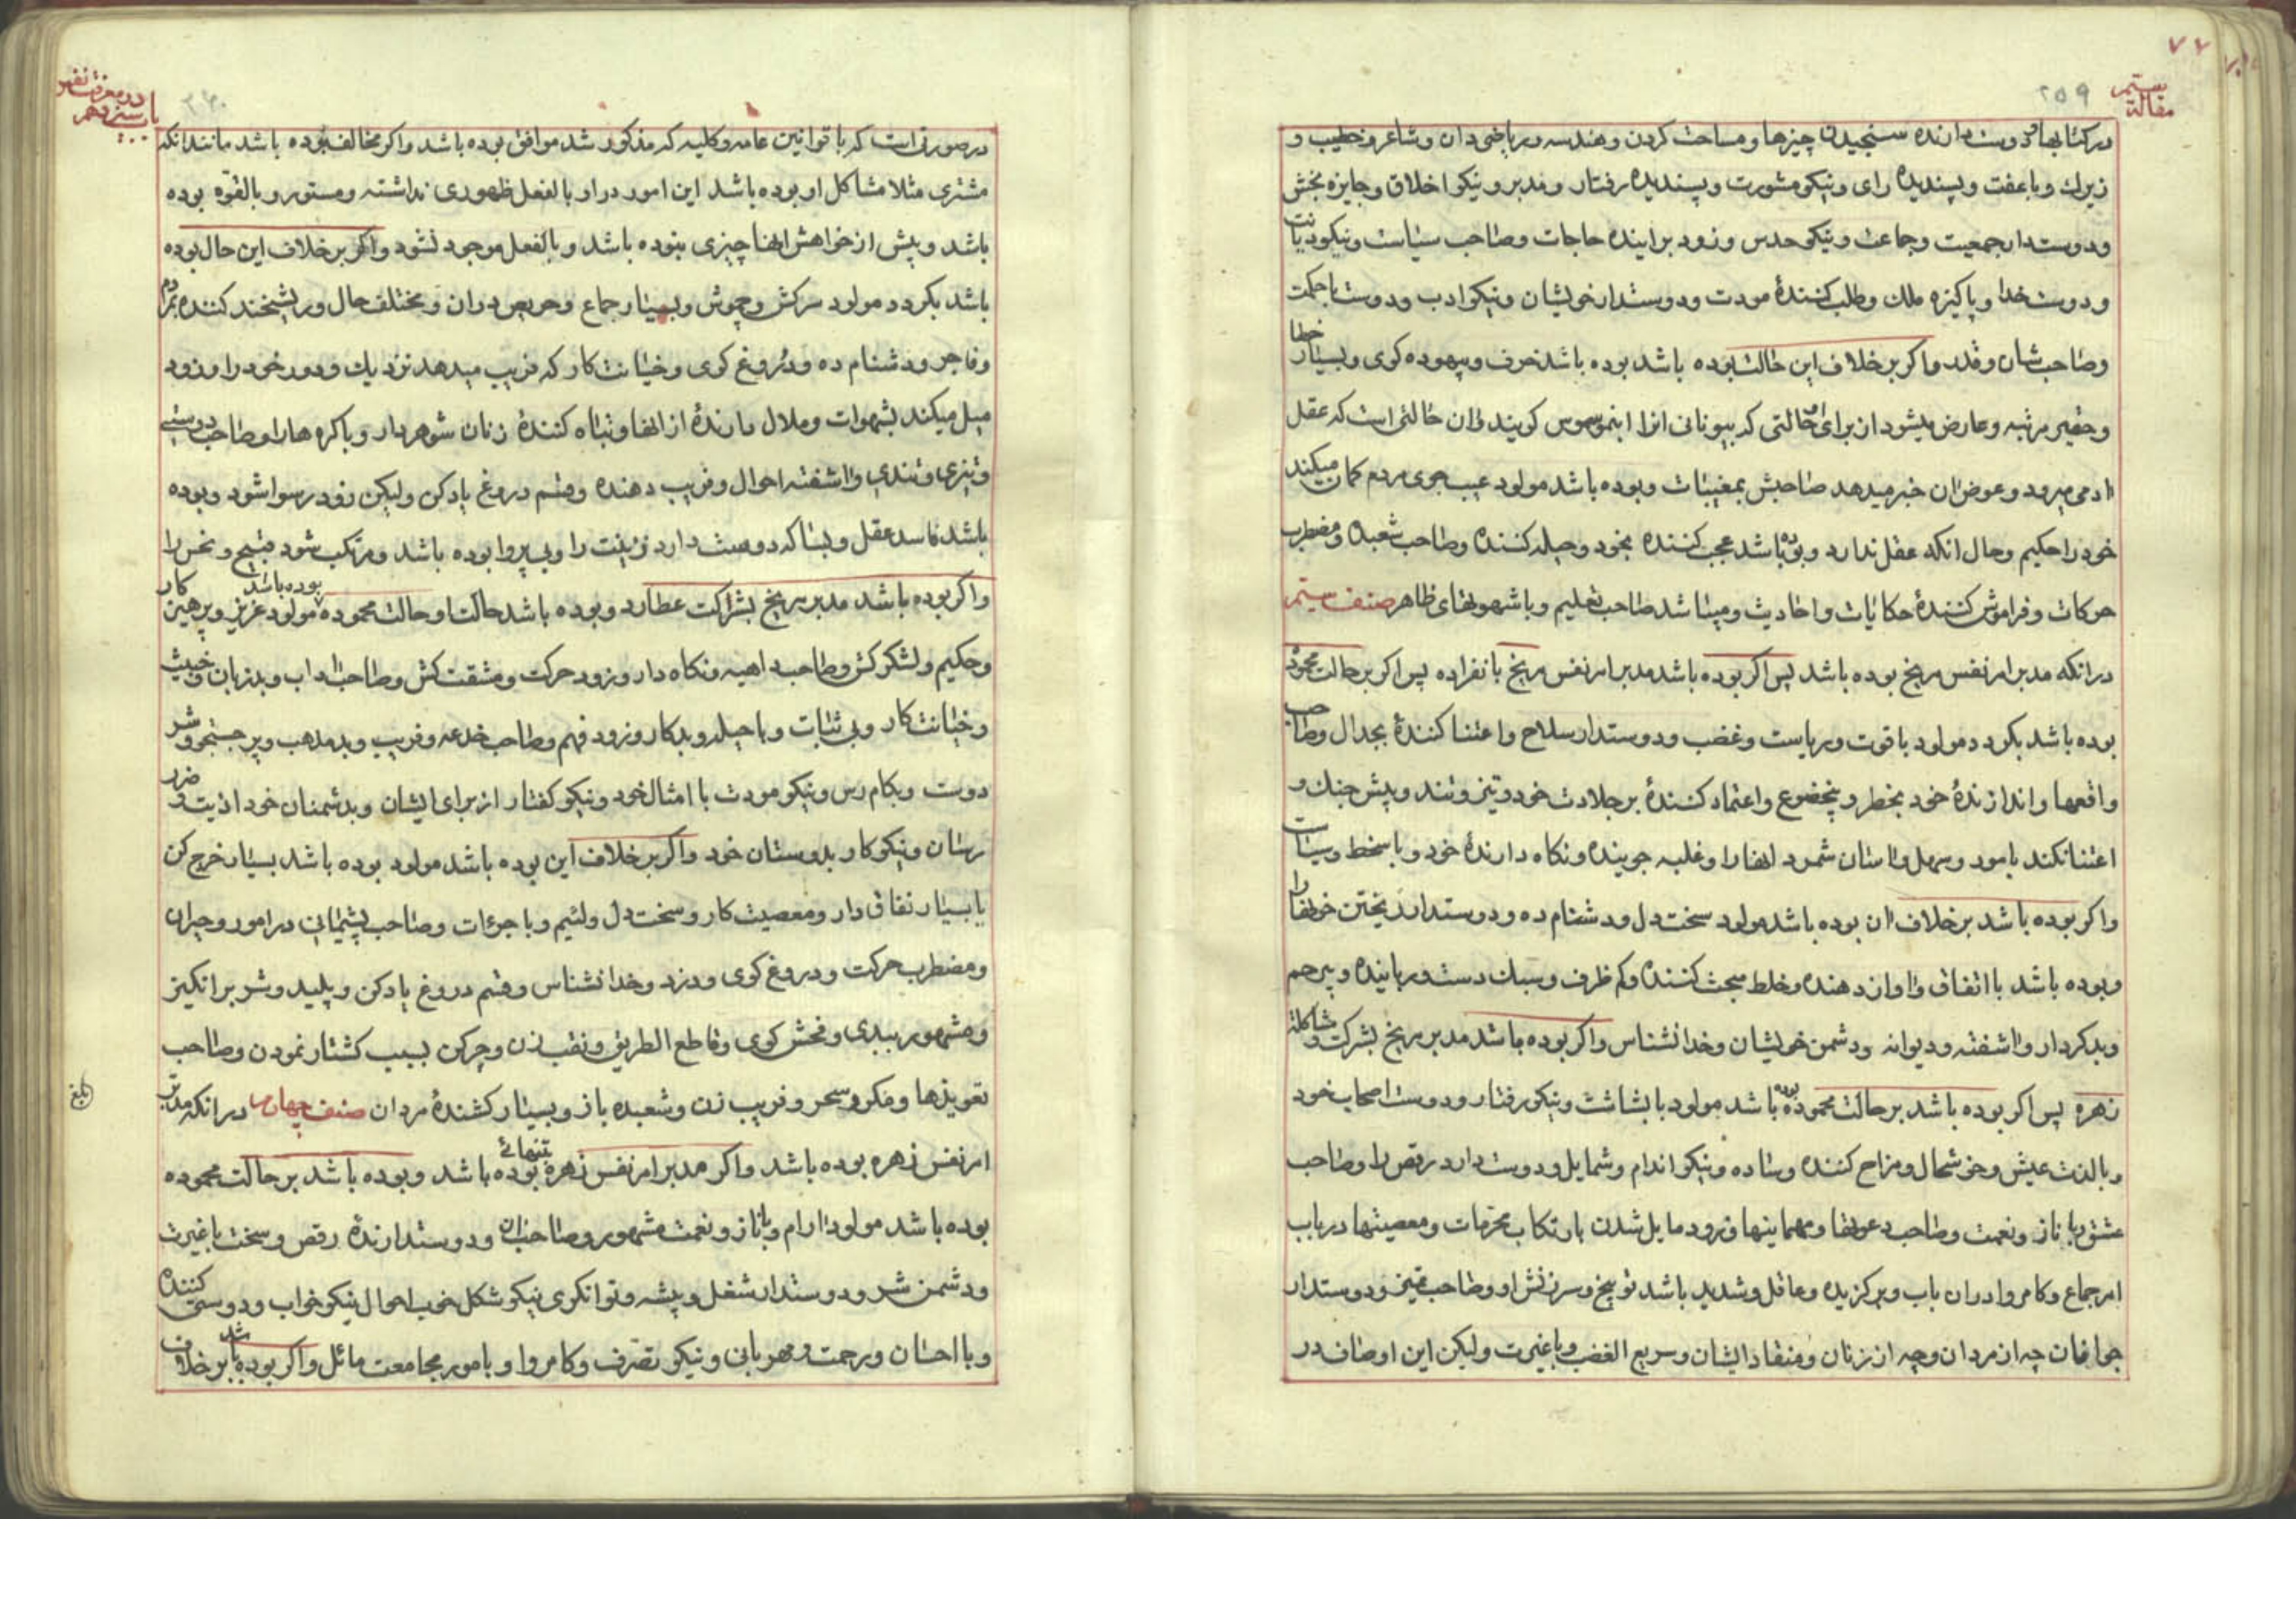 ۷۷
۲۵۹
مقالة سیّم
در کتابها و دوست دارنده سنجیدن چیزها و مساحت کردن و هندسه و ریاضی دان و شاعر و خطیب و
زیرك و با عفت و پسندیده رای و نیکو مشورت و پسندیده رفتار و مدبر و نیکو اخلاق و جایزه بخش
و دوستدار جمعیت و جماعت و نیکو حدس و زود برایندهٔ حاجات و صاحب سیاست و نیکو دیانت
و دوست خدا و پاکیزه ملك و طلب کنندهٔ مودت و دوستدار خویشان و نیکو ادب و دوست با حکمت
و صاحب شان و قدر و اکر بر خلاف این حالت بوده باشد بوده باشد خرف و بیهوده کوی و بسیار خطا
و حقیر مرتبه و عارض میشود از برای او حالتی که بیونانی انرا کویند و ان حالتی است که عقل
ادمی میرود و عوض ان خبر میدهد صاحبش بمغیبات و بوده باشد مولود عیب جوی مردم کمان میکند
خود را حکیم و حال انکه عقل ندارد و بوده باشد عجب کننده بخود و حیله کننده و صاحب شعبده و مضطرب
حرکات و فراموش کنندهٔ حکایات و احادیث و میباشد صاحب تعلیم و با شهوتهای ظاهر صنف سیّم
در انکه مدبر امر نفس مریخ بوده باشد پس اکر بوده باشد مدبر امر نفس مریخ بانفراده پس اکر بر حالت محموده
بوده باشد بکردد مولود با قوت و ریاست و غضب و دوستدار سلاح و اعتنا کنندهٔ بجدال و صاحب
واقعها و اندازندهٔ خود بخطر و بیخضوع و اعتماد کنندهٔ بر جلادت خود و تیز و تند و پیش جنك و
اعتنا نکند بامور و سهل و اسان شمرد انها را و غلبه جوینده و نکاه دارندهٔ خود و با سخط و سیاست
و اکر بوده باشد بر خلاف ان بوده باشد مولود سخت دل و دشنام ده و دوستدار ریختن خونها را
و بوده باشد با اتفاق و اواز دهنده و خلط مبحث کننده و کم ظرف و سبك دست و رباینده و بیرحم
و بد کردار و اشفته و دیوانه و دشمن خویشان و خدا نشناس و اکر بوده باشد مدبر مریخ بشرکت و مشاکلة
زهره پس اکر بوده باشد بر حالت محموده بوده باشد مولود با بشاشت و نیکو رفتار و دوست اصحاب خود
و با لذت عیش و خوشحال و مزاح کننده و ساده و نیکو اندام و شمایل و دوست دارد رقص را و صاحب
عشق و با ناز و نعمت و صاحب دعوتها و مهمانیها و زود مایل شدن بارتکاب محرمات و معصیتها در باب
امر جماع و کامروا در ان باب و برکزیده و عاقل و شدید باشد توبیخ و سرزنش او و صاحب تمیز و دوستدار
جوانان چه از مردان و چه از زنان و منقاد ایشان و سریع الغضب و با غیرت و لیکن این اوصاف در
۲۶۰
باب سیزدهم
در معرفت نفس
در صورتی است که با قوانین عامه و کلیه که مذکور شد موافق بوده باشد و اکر مخالف بوده باشد مانند انکه
مشتری مثلا مشاکل او بوده باشد این امور در او بالفعل ظهوری نداشته و مستور و بالقوه بوده
باشد و پیش از خواهش انها چیزی نبوده باشد و بالفعل موجود نشود و اکر بر خلاف این حال بوده
باشد بکردد مولود سرکش و چموش و بسیار جماع و حریص در ان و مختلف حال و ریشخند کننده بمردم
و فاجر و دشنام ده و دروغ کوی و خیانت کار که فریب میدهد نزدیك و دور خود را و زود
میل میکند بشهوات و ملال دارندهٔ از انها و تباه کنندهٔ زنان شوهردار و باکره ها را و صاحب درشتی
و تیزی و تندی و اشفته احوال و فریب دهنده و قسم دروغ یاد کن و لیکن زود رسوا شود و بوده
باشد فاسد عقل و بسا که دوست دارد زینت را و بی پروا بوده باشد و مرتکب شود قبیح و نحس را
و اکر بوده باشد مدبر مریخ بشراکت عطارد و بوده باشد حالت او حالت محموده بوده باشد مولود عزیز و پرهیز کار
و حکیم و لشکر کش و صاحب داهیه و نکاه دار و زود حرکت و مشقت کش و صاحب اداب و بد زبان و خبیث
و خیانت کار و بی ثبات و با حیله و بد کار و زود فهم و صاحب خدعه و فریب و بد مذهب و پر جستجو و شر
دوست و بکام رس و نیکو مودت با امثال خود و نیکو کفتار از برای ایشان و بدشمنان خود اذیت و ضرر
رسان و نیکو کار بدوستان خود و اکر بر خلاف این بوده باشد مولود بوده باشد بسیار خرج کن
یا بسیار نفاق دار و معصیت کار و سخت دل و لئیم و با جرٔات و صاحب پشیمانی در امور و حیران
و مضطرب حرکت و دروغ کوی و دزد و خدا نشناس و قسم دروغ یاد کن و پلید و شر برانکیز
و مشهور ببدی و فحش کوی و قاطع الطریق و نقب زن و چرکن بسبب کشتار نمودن و صاحب
تعویذها و مکر و سحر و فریب زن و شعبده باز و بسیار کشندهٔ مردان صنف چهارم در انکه مدبر
امر نفس زهره بوده باشد و اکر مدبر امر نفس زهره بتنهائی بوده باشد و بوده باشد بر حالت محموده
بوده باشد مولود ارام و با ناز و نعمت مشهور و صاحب ان و دوستدارندهٔ رقص و سخت با غیرت
و دشمن شر و دوستدار شغل و پیشه و توانکری نیکو شکل خوب احوال نیکو خواب و دوستی کننده
و با احسان و رحمت و مهربانی و نیکو تصرف و کامروا و بامور مجامعت مائل و اکر بوده باشد بر خلاف
بلغ